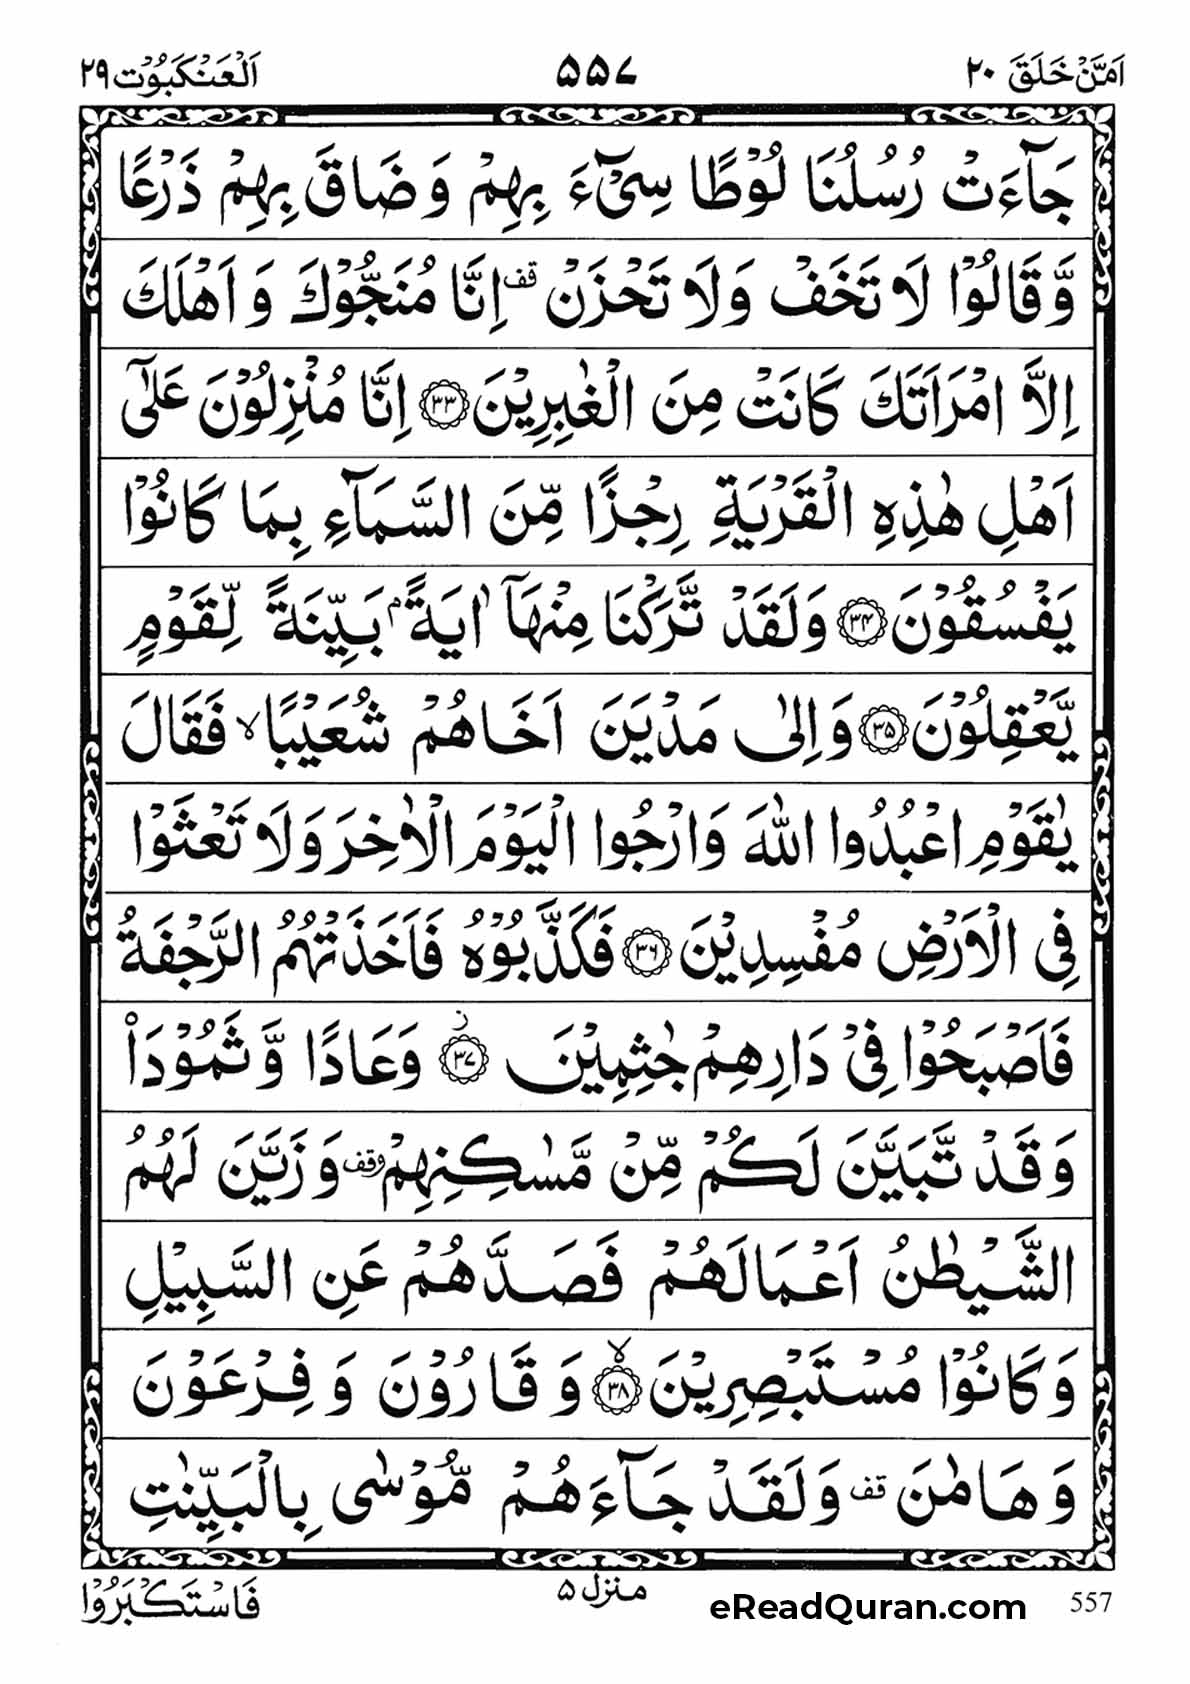 اَمَّنۡ خَلَقَ ۲۰
۵۵۷
اَلۡعَنۡكَبُوۡت ۲۹
جَآءَتۡ رُسُلُنَا لُوۡطًا سِیۡٓءَ بِهِمۡ وَ ضَاقَ بِهِمۡ ذَرۡعًا
وَّ قَالُوۡا لَا تَخَفۡ وَلَا تَحۡزَنۡ قف اِنَّا مُنَجُّوۡكَ وَ اَهۡلَكَ
اِلَّا امۡرَاَتَكَ كَانَتۡ مِنَ الۡغٰبِرِیۡنَ ﴿۳۳﴾ اِنَّا مُنۡزِلُوۡنَ عَلٰۤی
اَهۡلِ هٰذِهِ الۡقَرۡیَةِ رِجۡزًا مِّنَ السَّمَآءِ بِمَا كَانُوۡا
یَفۡسُقُوۡنَ ﴿۳۴﴾ وَلَقَدۡ تَّرَكۡنَا مِنۡهَاۤ اٰیَةًۢ بَیِّنَةً لِّقَوۡمٍ
یَّعۡقِلُوۡنَ ﴿۳۵﴾ وَ اِلٰی مَدۡیَنَ اَخَاهُمۡ شُعَیۡبًا ۙ فَقَالَ
یٰقَوۡمِ اعۡبُدُوا اللّٰهَ وَ ارۡجُوا الۡیَوۡمَ الۡاٰخِرَ وَلَا تَعۡثَوۡا
فِی الۡاَرۡضِ مُفۡسِدِیۡنَ ﴿۳۶﴾ فَكَذَّبُوۡهُ فَاَخَذَتۡهُمُ الرَّجۡفَةُ
فَاَصۡبَحُوۡا فِیۡ دَارِهِمۡ جٰثِمِیۡنَ ﴿۳۷﴾ ز وَ عَادًا وَّ ثَمُوۡدَا۠
وَ قَدۡ تَّبَیَّنَ لَكُمۡ مِّنۡ مَّسٰكِنِهِمۡ وقف وَ زَیَّنَ لَهُمُ
الشَّیۡطٰنُ اَعۡمَالَهُمۡ فَصَدَّهُمۡ عَنِ السَّبِیۡلِ
وَ كَانُوۡا مُسۡتَبۡصِرِیۡنَ ﴿۳۸﴾ ۙ وَ قَارُوۡنَ وَ فِرۡعَوۡنَ
وَ هَامٰنَ قف وَلَقَدۡ جَآءَهُمۡ مُّوۡسٰی بِالۡبَیِّنٰتِ
فَاسۡتَكۡبَرُوۡا
منزل ۵
eReadQuran.com
557